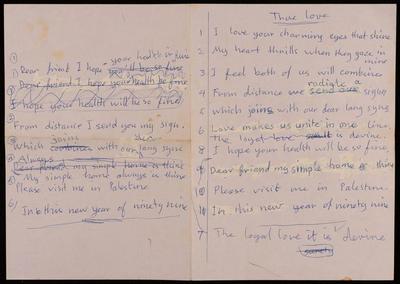 your health is fine
1) Dear friend I hope you'll be so fine
Dear friend I hope your health be fine
I hope your health will be so fine
From distance I send you my sign.
joins old
Which combines with our lang syne
Always
Dear friend my simple home is thine
My simple home always is thine
Please visit me in Palestine
6) In this new year of ninety nine
True love
1 I love your charming eyes that shine
2 My heart thrills when they gaze in mine
3 I feel both of us will combine
radiate a
4 From distance we send our sign
5 which joins with our dear lang syne
6 Love makes us unite in one line.
The loyal love is devine.
8 I hope your health will be so fine,
9 Dear friend my simple home is thine
10 Please visit me in Palestine.
In this new year of ninety nine
7 The loyal love it is devine